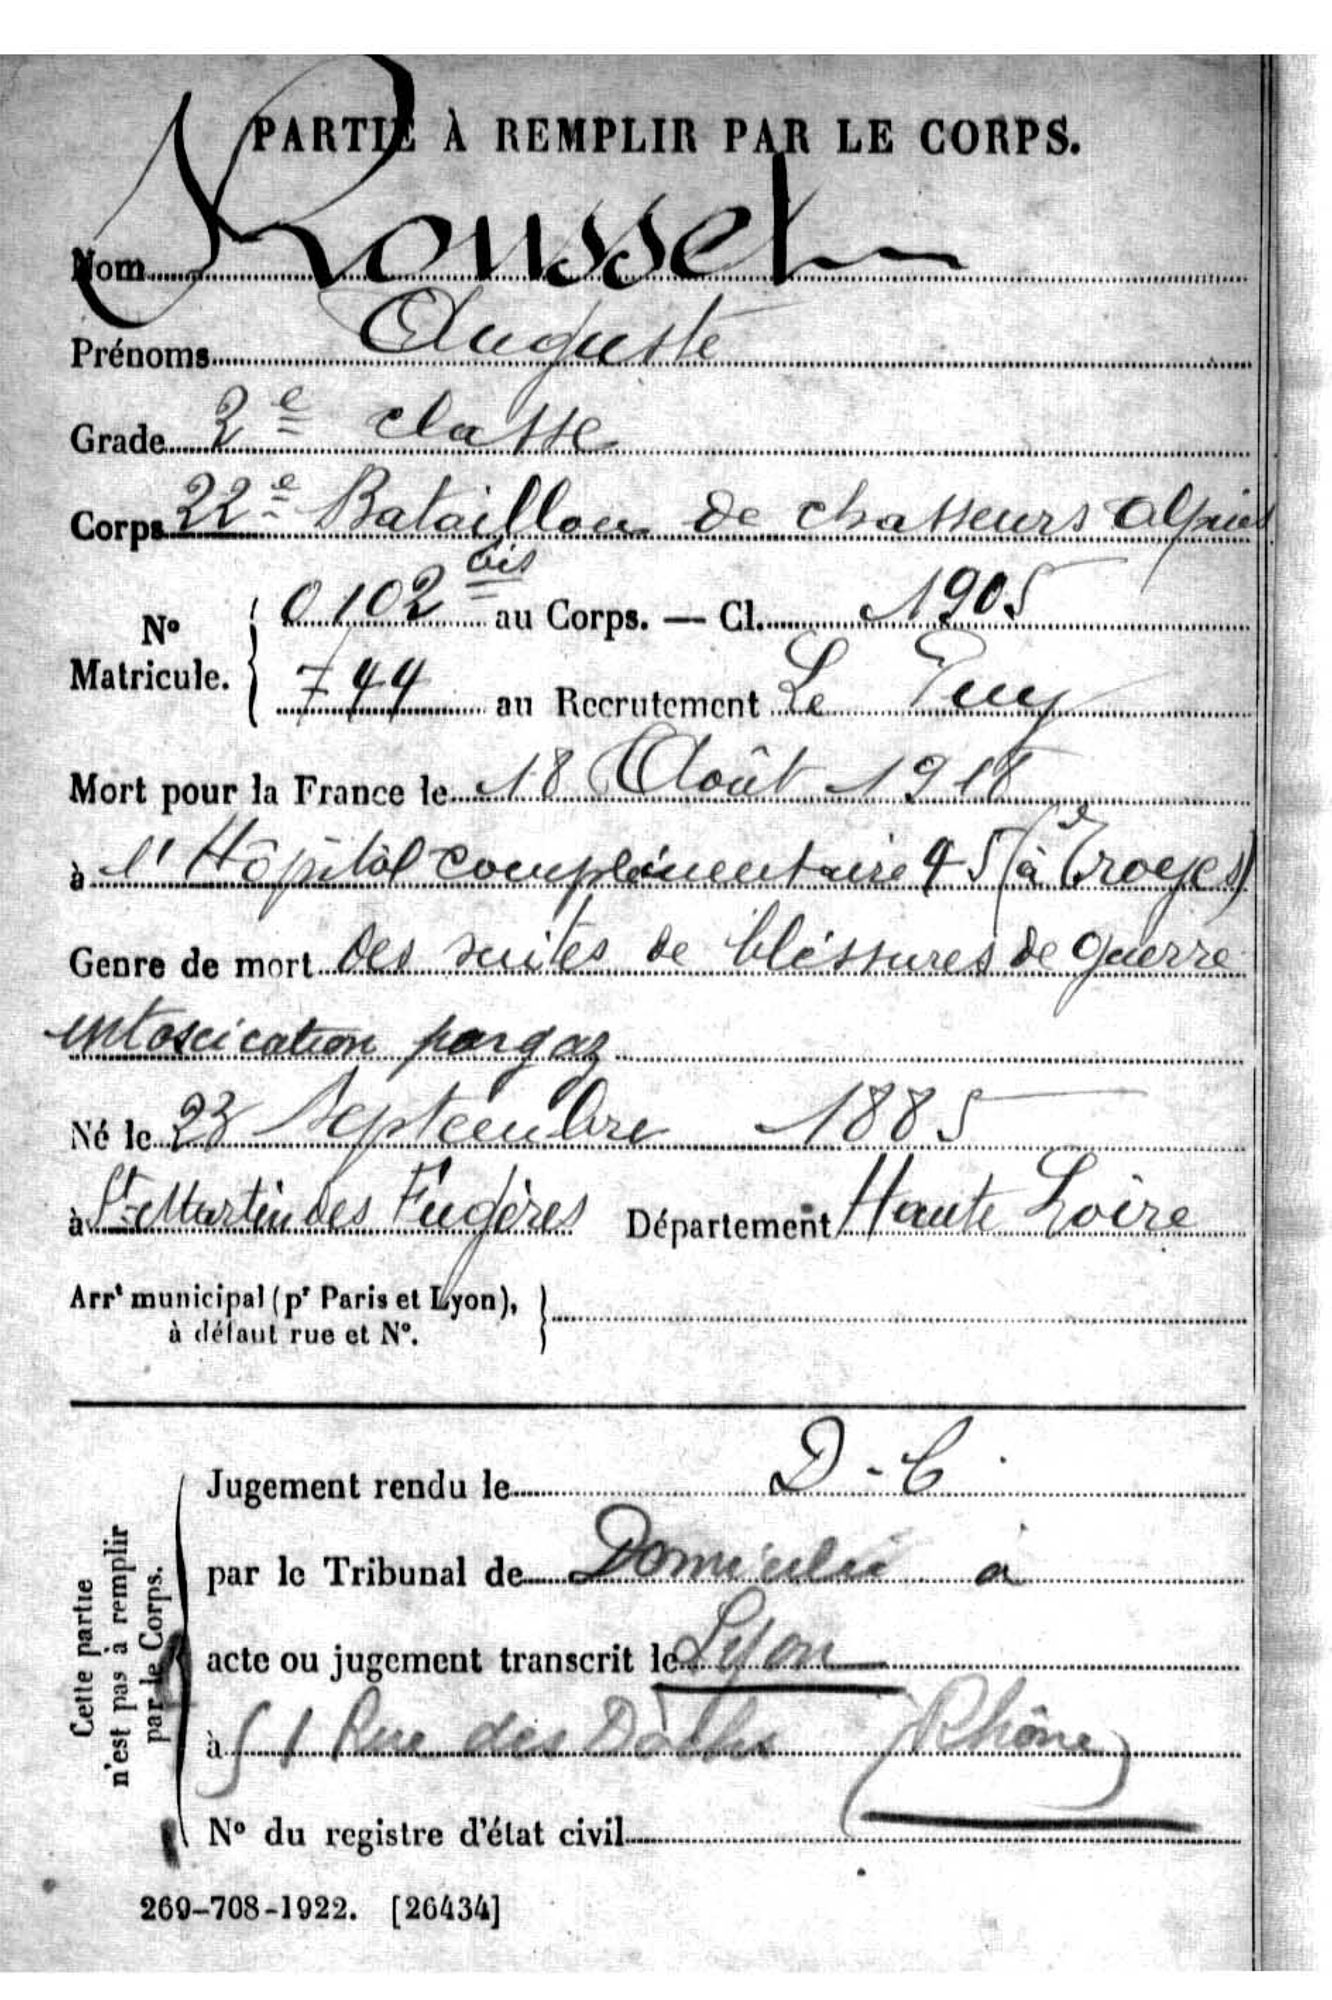 PARTIE À REMPLIR PAR LE CORPS.
Nom Rousset
Prénoms Auguste
Grade 2e classe
Corps 22e Bataillon de chasseurs Alpins
No Matricule. { 0102 bis au Corps. — Cl. 1905
744 au Recrutement Le Puy
Mort pour la France le 18 Août 1918
à l'Hôpital complémentaire 45 (à Troyes)
Genre de mort des suites de bléssures de guerre
intoxication par gaz
Né le 23 Septembre 1885
à St-Martin des Fugères Département Haute Loire
Arrt municipal (pr Paris et Lyon), à défaut rue et No. }
Cette partie n'est pas à remplir par le Corps.
Jugement rendu le D-C
par le Tribunal de Domicilié à
acte ou jugement transcrit le Lyon
à 51 Rue des (Rhône)
No du registre d'état civil
269-708-1922. [26434]